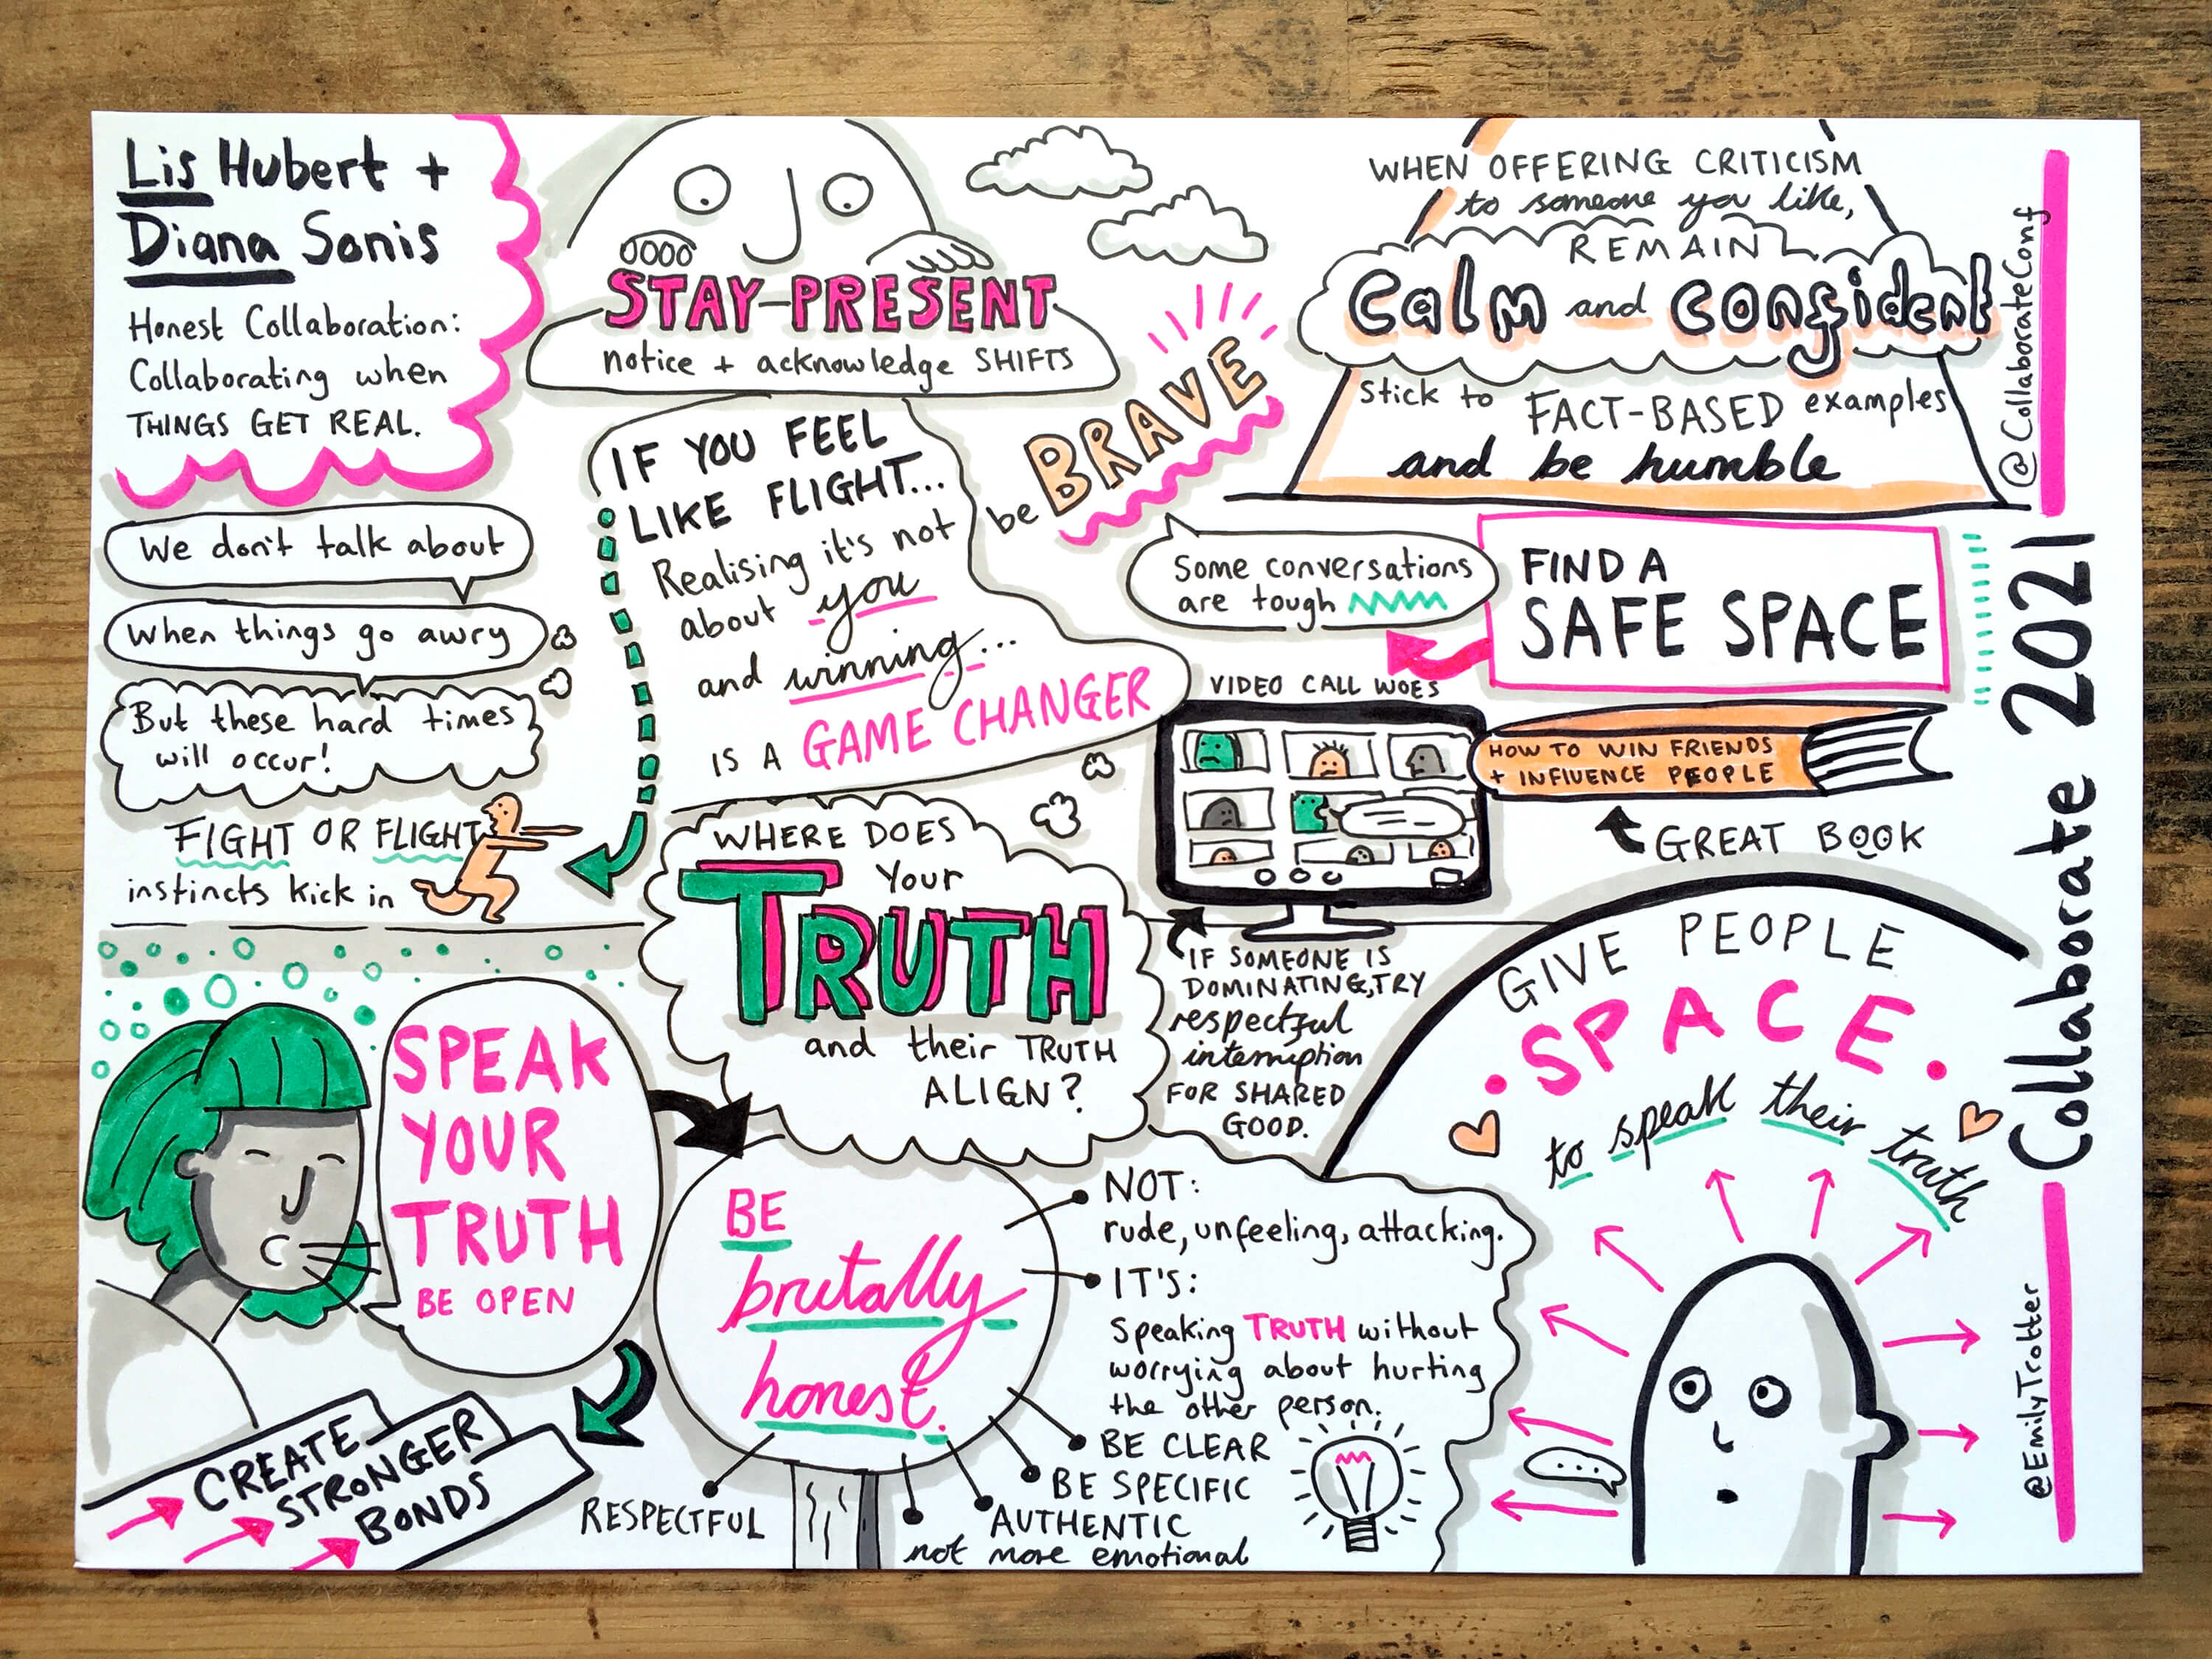 Lis Hubert +
Diana Sonis
Honest Collaboration:
Collaborating when
THINGS GET REAL.
We don't talk about
when things go awry
But these hard times
will occur!
FIGHT OR FLIGHT
instincts kick in
STAY-PRESENT
notice + acknowledge SHIFTS
IF YOU FEEL
LIKE FLIGHT...
Realising it's not
about you
and winning...
IS A GAME CHANGER
be BRAVE
WHEN OFFERING CRITICISM
to someone you like,
REMAIN
Calm and confident
Stick to FACT-BASED examples
and be humble
Some conversations
are tough
FIND A
SAFE SPACE
VIDEO CALL WOES
HOW TO WIN FRIENDS
+ INFLUENCE PEOPLE
GREAT BOOK
IF SOMEONE IS
DOMINATING, TRY
respectful
interruption
FOR SHARED
GOOD.
WHERE DOES
Your
TRUTH
and their TRUTH
ALIGN?
SPEAK
YOUR
TRUTH
BE OPEN
CREATE
STRONGER
BONDS
BE
brutally
honest.
NOT:
rude, unfeeling, attacking.
IT'S:
Speaking TRUTH without
worrying about hurting
the other person.
BE CLEAR
BE SPECIFIC
AUTHENTIC
not more emotional
RESPECTFUL
GIVE PEOPLE
. SPACE .
to speak their truth
...
@CollaborateConf
Collaborate 2021
@EmilyTrotter